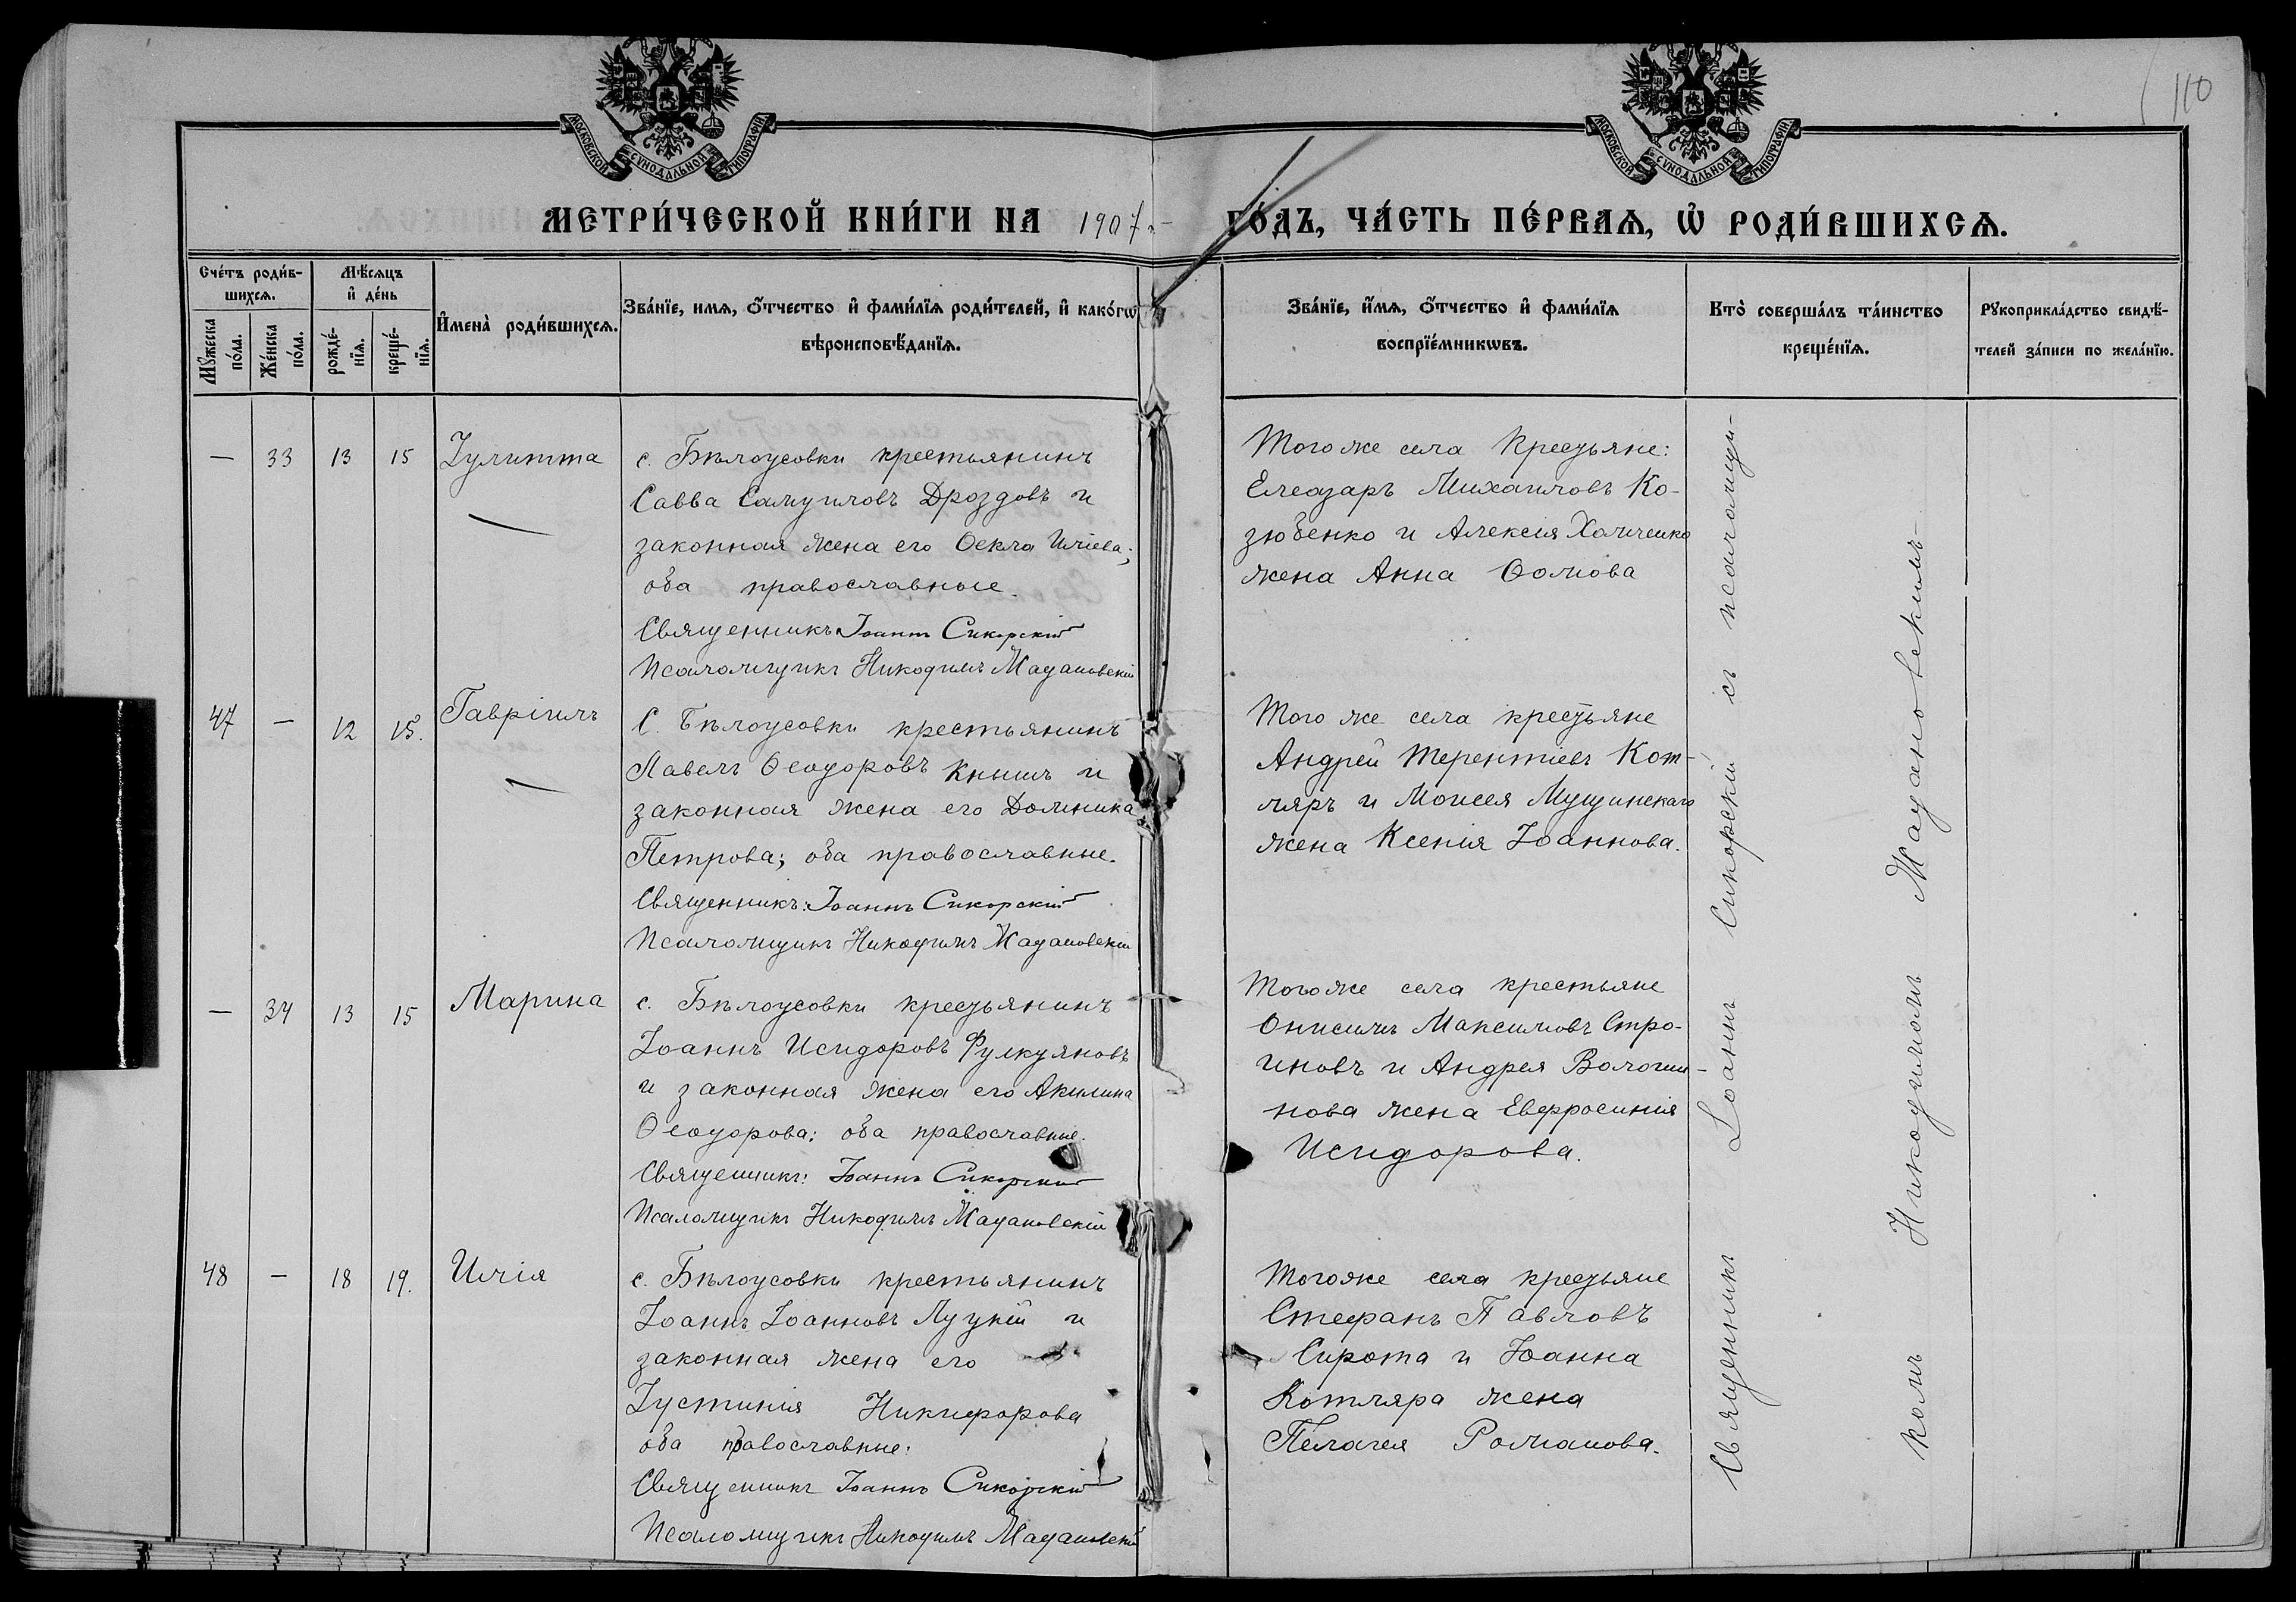 110
МОСКОВСКОЙ СѴНОДАЛЬНОЙ ТИПОГРАФІИ
МОСКОВСКОЙ СѴНОДАЛЬНОЙ ТИПОГРАФІИ
МЕТРИ́ЧЕСКОЙ КНИ́ГИ НА 1907 г. ГО́ДЪ, ЧА́СТЬ ПЕ́РВАѦ, Ѡ҆ РОДИ́ВШИХСѦ.
Сче́тъ роди́в-
шихсѧ.
Мꙋ́жеска по́ла.
Же́нска по́ла.
Мѣ́сѧцъ
и҆ де́нь
рожде́-
нїѧ.
креще́-
нїѧ.
И҆мена̀ роди́вшихсѧ.
Зва́нїе, имѧ, ѻ҆́тчество и҆ фами́лїѧ роди́телей, и҆ како́гѡ
вѣроисповѣ́данїѧ.
Зва́нїе, и҆́мѧ, ѻ҆́тчество и҆ фами́лїѧ
воспрїе́мникѡвъ.
Кто̀ соверша́лъ та́инство
креще́нїѧ.
Рꙋкоприкла́дство свидѣ́-
телей за́писи по жела́нїю.
— 33 13 15 Іулитта
с. Бѣлоусовки крестьянинъ
Савва Самуиловъ Дроздовъ и
законная жена его Ѳекла Иліева;
оба православные.
Священникъ Іоаннъ Сикорскій
Псаломщикъ Никодимъ Мадановскій
Того же села Крестьяне:
Елеазаръ Михаиловъ Ко-
зюбенко и Алексія Халченко
жена Анна Ѳомова
47 — 12 15. Гавріилъ
С. Бѣлоусовки крестьянинъ
Павелъ Ѳеодоровъ Кнышъ и
законная жена его Домника
Петрова; оба православные.
Священникъ: Іоаннъ Сикорскій
Псаломщикъ Никодимъ Мадановскій
Того же села крестьяне
Андрей Терентіевъ Кот-
ляръ и Моисея Мущинскаго
жена Ксенія Іоаннова.
— 34 13 15 Марина
с. Бѣлоусовки крестьянинъ
Іоаннъ Исидоровъ Фулкуяновъ
и законная жена его Акилина
Ѳеодорова; оба православные.
Священникъ: Іоаннъ Сикорскій
Псаломщикъ Никодимъ Мадановскій
Того же села крестьяне
Онисимъ Максимовъ Стро-
иновъ и Андрея Волоши-
нова жена Евфросинія
Исидорова.
48 — 18 19. Илія
с. Бѣлоусовки крестьянинъ
Іоаннъ Іоанновъ Луцкій и
законная жена его
Іустинія Никифорова
оба православные:
Священникъ Іоаннъ Сикорскій
Псаломщикъ Никодимъ Мадановскій
Того же села крестьяне
Стефанъ Павловъ
Сирота и Іоанна
Котляра жена
Пелагея Романова.
Священникъ Іоаннъ Сикорскій съ псаломщи-
комъ Никодимомъ Мадановскимъ